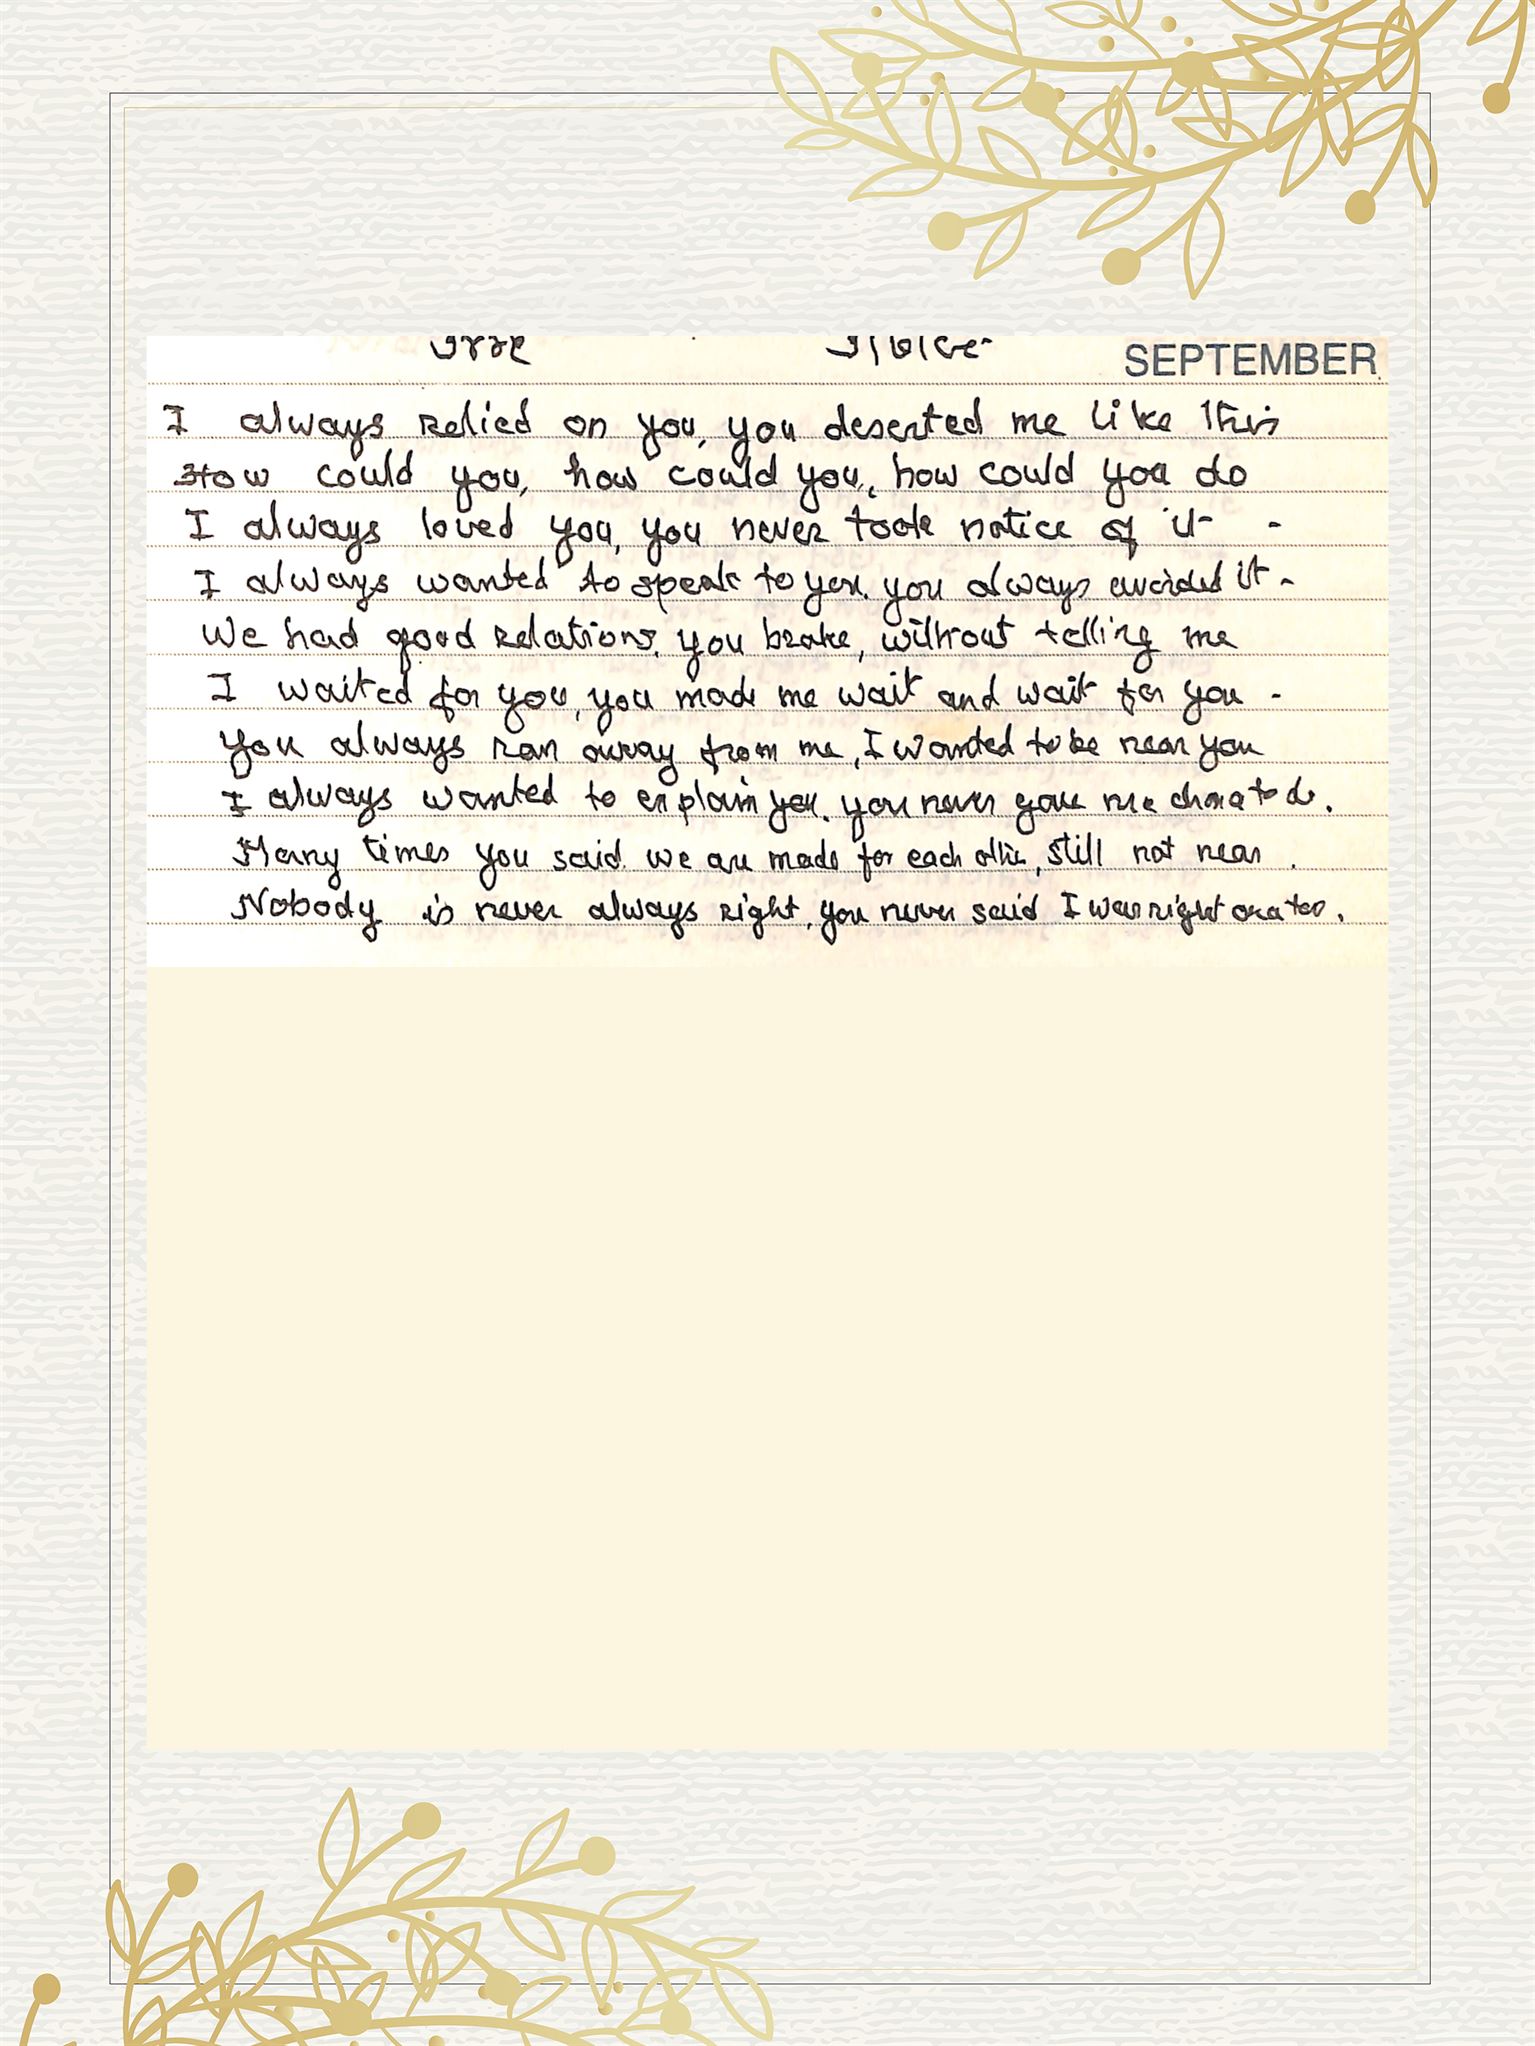 SEPTEMBER
I always relied on you, you deserted me like this
How could you, how could you, how could you do
I always loved you, you never took notice of it -
I always wanted to speak to you. you always avoided it -
We had good relations, you broke, without telling me
I waited for you, you made me wait and wait for you -
You always ran away from me, I wanted to be near you
I always wanted to explain you. you never gave me chance to do.
Many times you said we are made for each other, still not near.
Nobody is never always right, you never said I was right